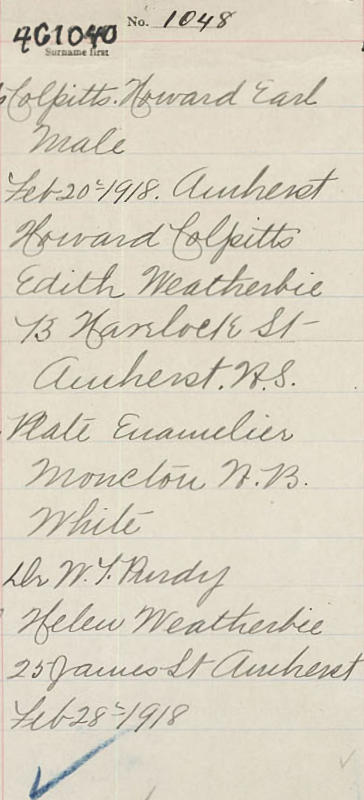 No. 1048
401040
Surname first
Colpitts. Howard Earl
Male
Feb 20th 1918. Amherst
Howard Colpitts
Edith Weatherbie
13 Havelock St
Amherst. N.S.
Plate Enamelier
Moncton N.B.
White
Dr W. T. Purdy
Helen Weatherbie
25 James St Amherst
Feb 28th 1918